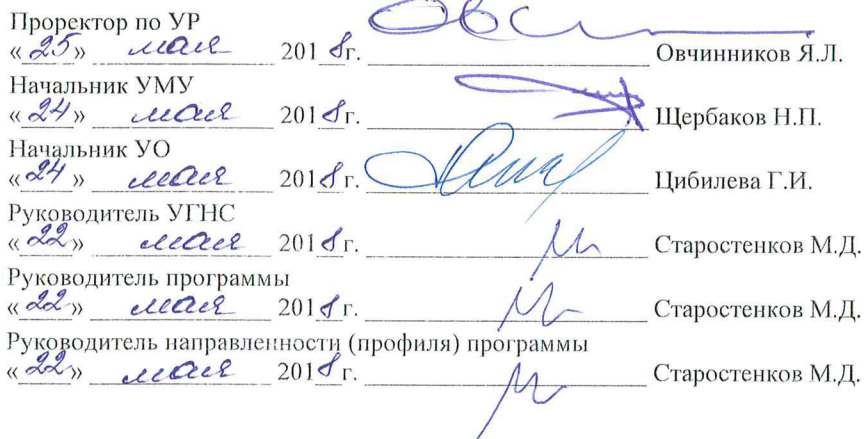 Проректор по УР
«25» мая 2018г. Овчинников Я.Л.
Начальник УМУ
«24» мая 2018г. Щербаков Н.П.
Начальник УО
«24» мая 2018г. Цибилева Г.И.
Руководитель УГНС
«22» мая 2018г. Старостенков М.Д.
Руководитель программы
«22» мая 2018г. Старостенков М.Д.
Руководитель направленности (профиля) программы
«22» мая 2018г. Старостенков М.Д.